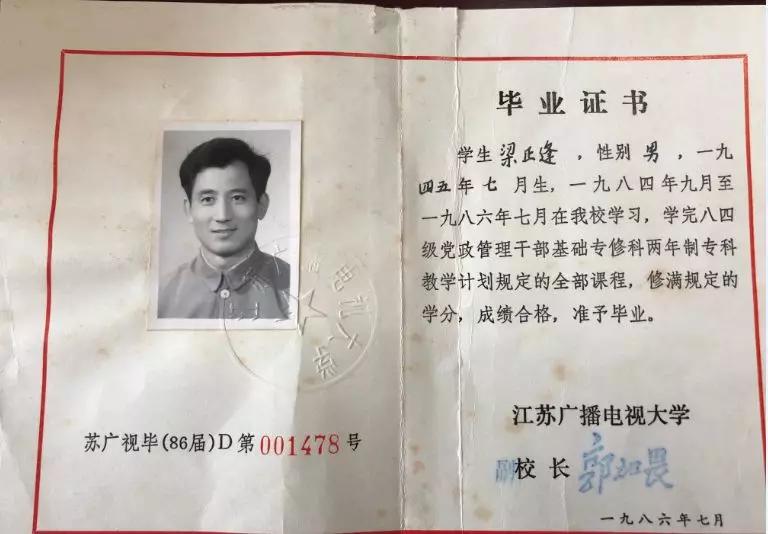 苏广视毕(86届)D第001478号
毕业证书
学生梁正逢，性别男，一九
四五年七月生，一九八四年九月至
一九八六年七月在我校学习，学完八四
级党政管理干部基础专修科两年制专科
教学计划规定的全部课程，修满规定的
学分，成绩合格，准予毕业。
江苏广播电视大学
副校长
一九八六年七月